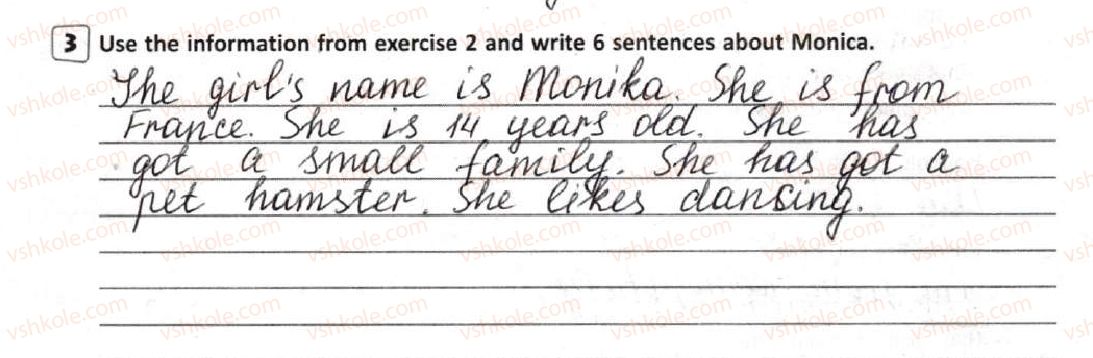 3 Use the information from exercise 2 and write 6 sentences about Monica.
The girl's name is Monika. She is from
France. She is 14 years old. She has
got a small family. She has got a
pet hamster. She likes dancing.
vshkole.com